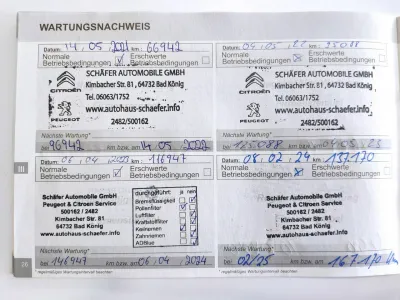 WARTUNGSNACHWEIS
Datum: 14.05.2021 km: 66942
Normale Betriebsbedingungen Erschwerte Betriebsbedingungen
SCHÄFER AUTOMOBILE GMBH
Kimbacher Str. 81, 64732 Bad König
CITROËN
Tel. 06063/1752
www.autohaus-schaefer.info
PEUGEOT
2482/500162
Nächste Wartung*
bei 96942 km bzw. am 14.05.2022
Datum: km: 95088
Normale Betriebsbedingungen Erschwerte Betriebsbedingungen
SCHÄFER AUTOMOBILE GMBH
Kimbacher Str. 81, 64732 Bad König
CITROËN
Tel. 06063/1752
www.autohaus-schaefer.info
PEUGEOT
2482/500162
Nächste Wartung*
bei 125088 km bzw. am
III
Datum: 06.04.2023 km: 116947
Normale Betriebsbedingungen Erschwerte Betriebsbedingungen
Schäfer Automobile GmbH
Peugeot & Citroen Service
500162 / 2482
Kimbacher Str. 81
64732 Bad König
www.autohaus-schaefer.info
durchgeführt: ja nein
Bremsflüssigkeit
Pollenfilter
Luftfilter
Kraftstofffilter
Keilriemen
Zahnriemen
ADBlue
Nächste Wartung*
bei 146947 km bzw. am 06.04.2024
Datum: 08.02.24 km: 137170
Normale Betriebsbedingungen Erschwerte Betriebsbedingungen
Schäfer Automobile GmbH
Peugeot & Citroen Service
500162 / 2482
Kimbacher Str. 81
64732 Bad König
www.autohaus-schaefer.info
Nächste Wartung*
bei 02/25 km bzw. am 167170 km
26
* regelmäßiges Wartungsintervall beachten
* regelmäßiges Wartungsintervall beachten